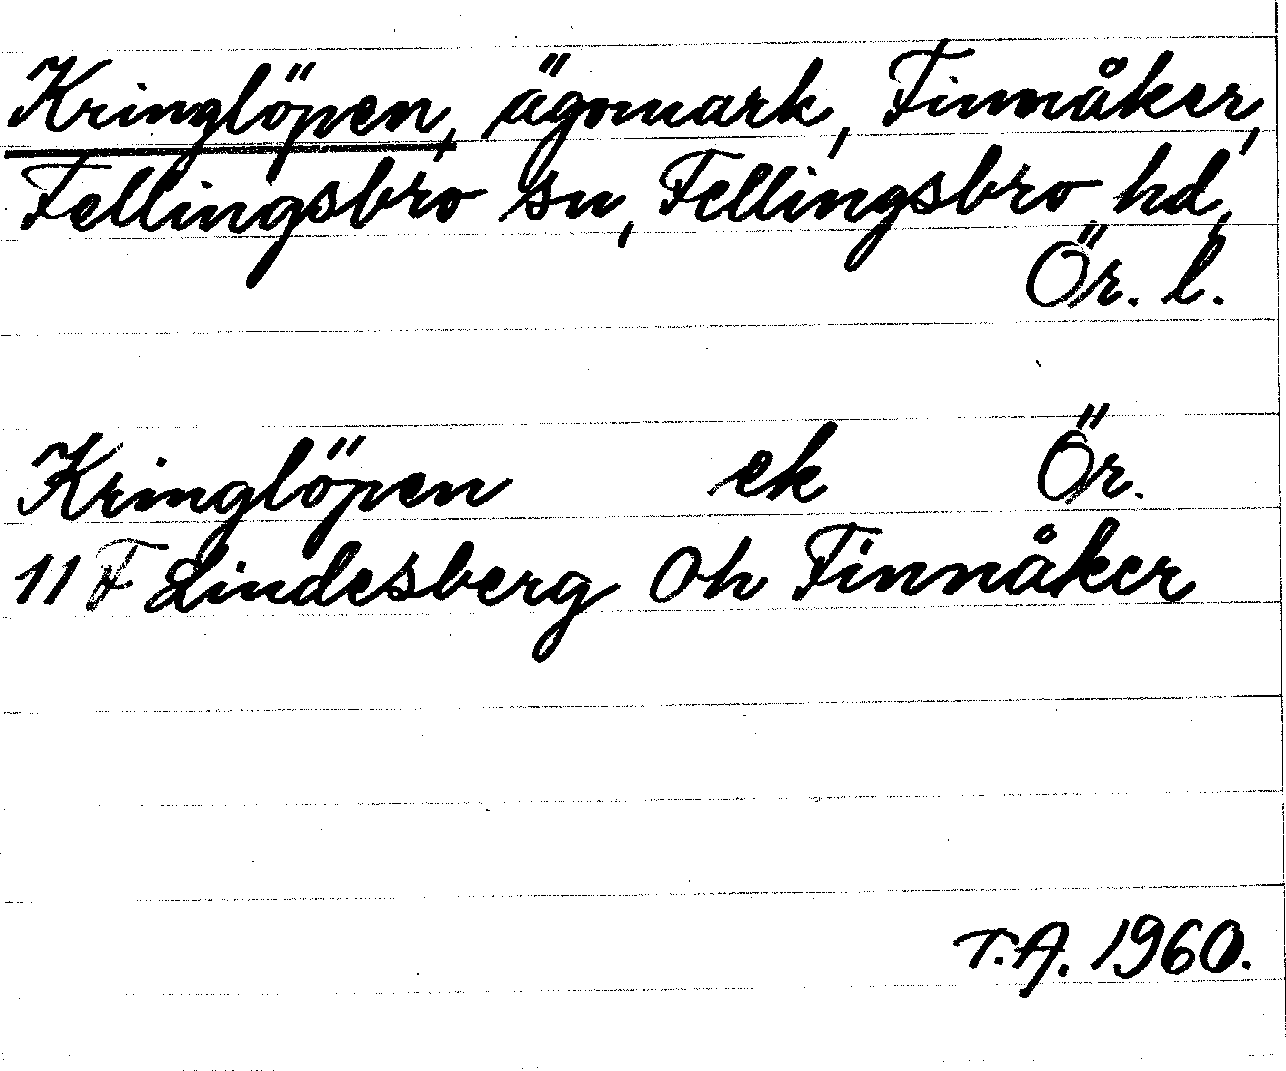 Kringlöpen, ägomark, Finnåker,
Fellingsbro sn, Fellingsbro hd,
Ör. l.
Kringlöpen ek Ör.
11 F Lindesberg Oh Finnåker
T.A. 1960.